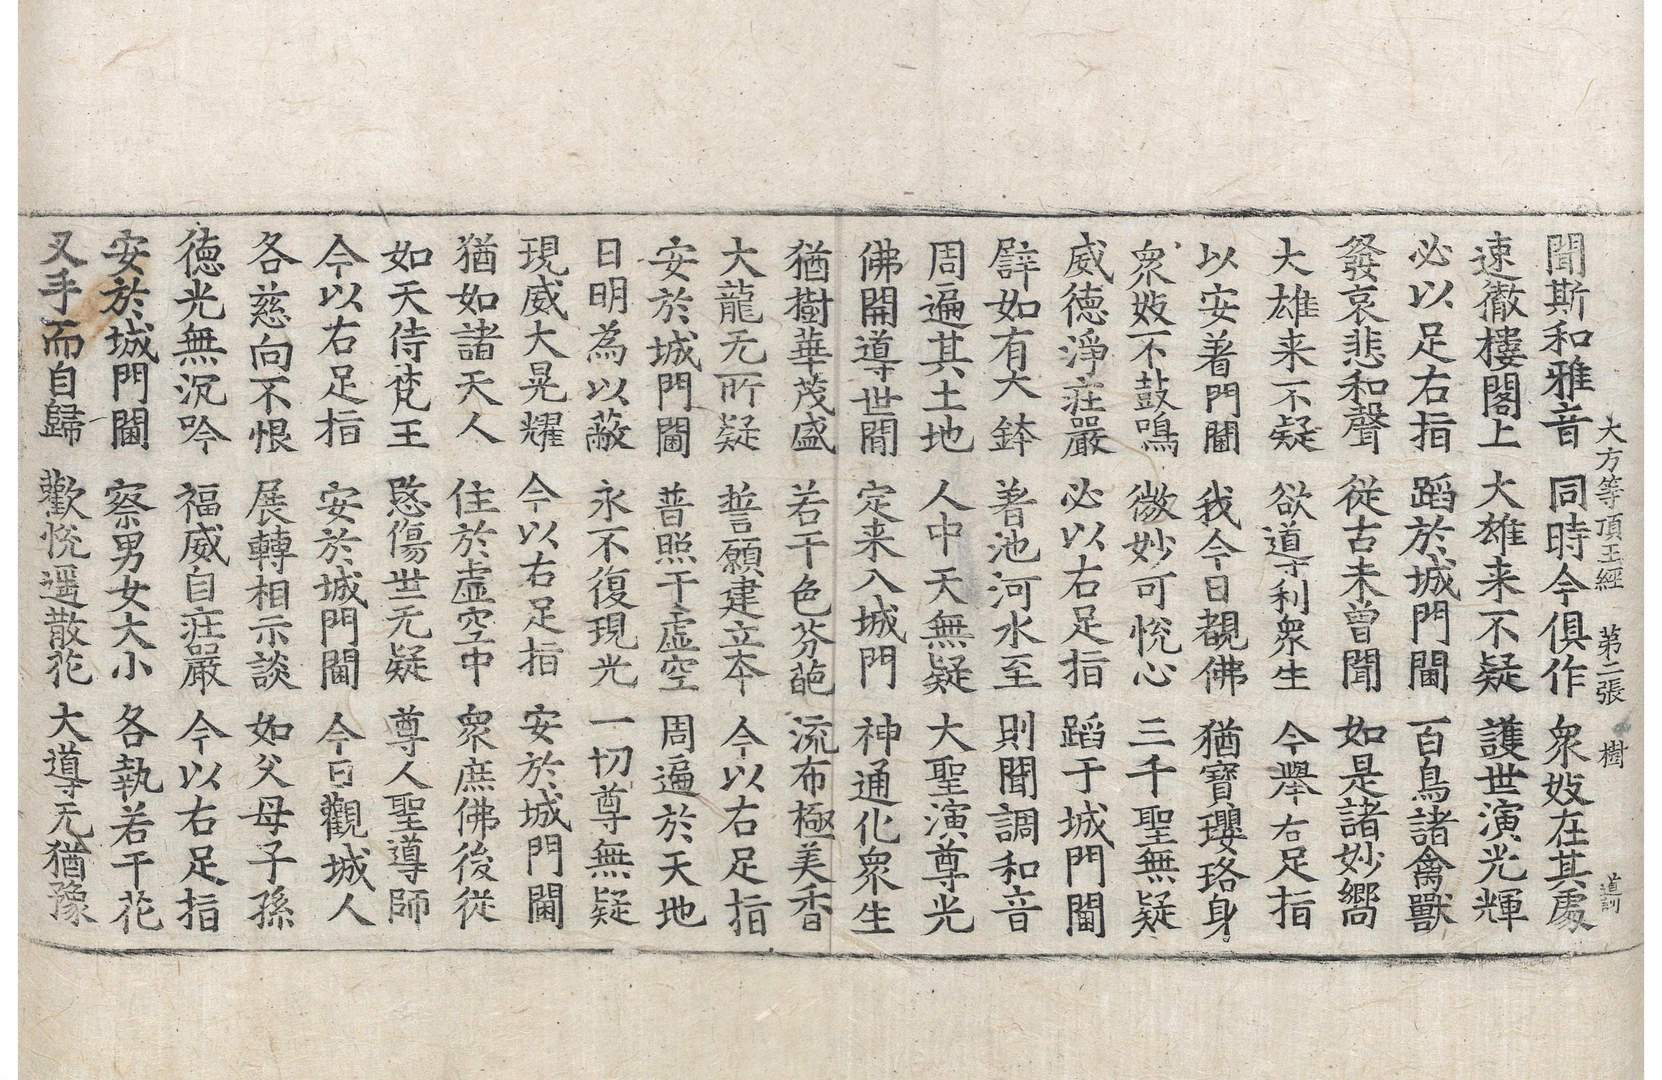 大方等頂王經 第二張 樹 道訶
聞斯和雅音 同時令俱作 衆妓在其處
速徹樓閣上 大雄来不疑 護世演光輝
必以足右指 蹈於城門閫 百鳥諸禽獸
發哀悲和聲 從古未曾聞 如是諸妙嚮
大雄来不疑 欲導利衆生 今舉右足指
以安著門閫 我今日覩佛 猶寶瓔珞身
衆妓不鼓鳴 微妙可悅心 三千聖無疑
威德淨莊嚴 必以右足指 蹈于城門閫
辟如有大鉢 著池河水至 則聞調和音
周遍其土地 人中天無疑 大聖演尊光
佛開導世間 定来入城門 神通化衆生
猶樹華茂盛 若干色芬葩 流布極美香
大龍无所疑 誓願建立本 今以右足指
安於城門閫 普照于虛空 周遍於天地
日明為以蔽 永不復現光 一切尊無疑
現威大晃耀 今以右足指 安於城門閫
猶如諸天人 住於虛空中 衆庶佛後從
如天侍梵王 愍傷世无疑 尊人聖導師
今以右足指 安於城門閫 今日觀城人
各慈向不恨 展轉相示談 如父母子孫
德光無沉吟 福威自莊嚴 今以右足指
安於城門閫 察男女大小 各執若干花
叉手而自歸 歡悅遥散花 大導无猶豫